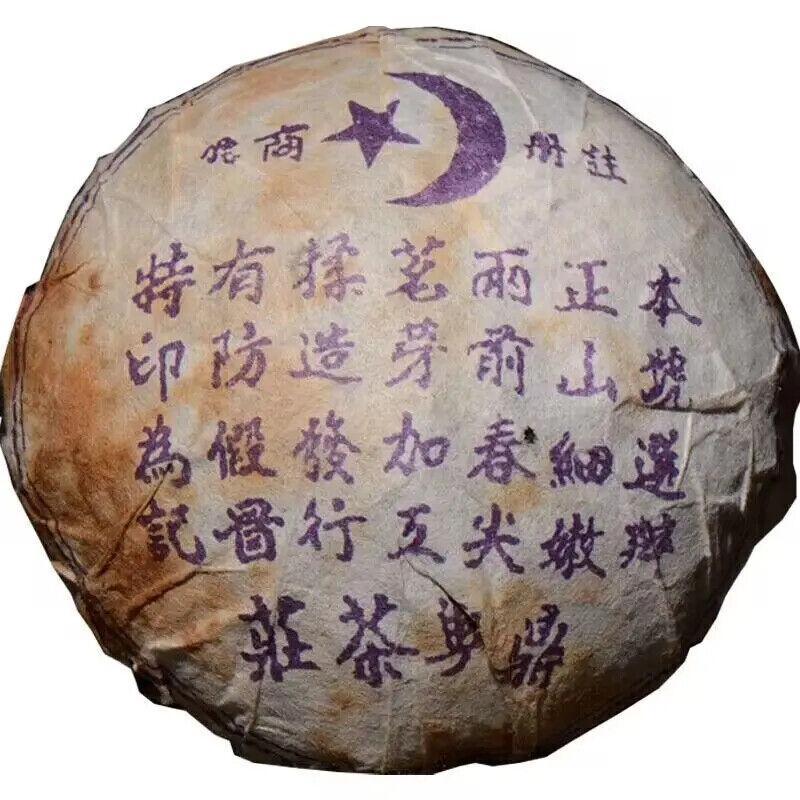 註册商
本號選辦
正山細嫩
雨前春尖
茗芽加工
揉造發行
有防假冒
特印為記
鼎興茶莊